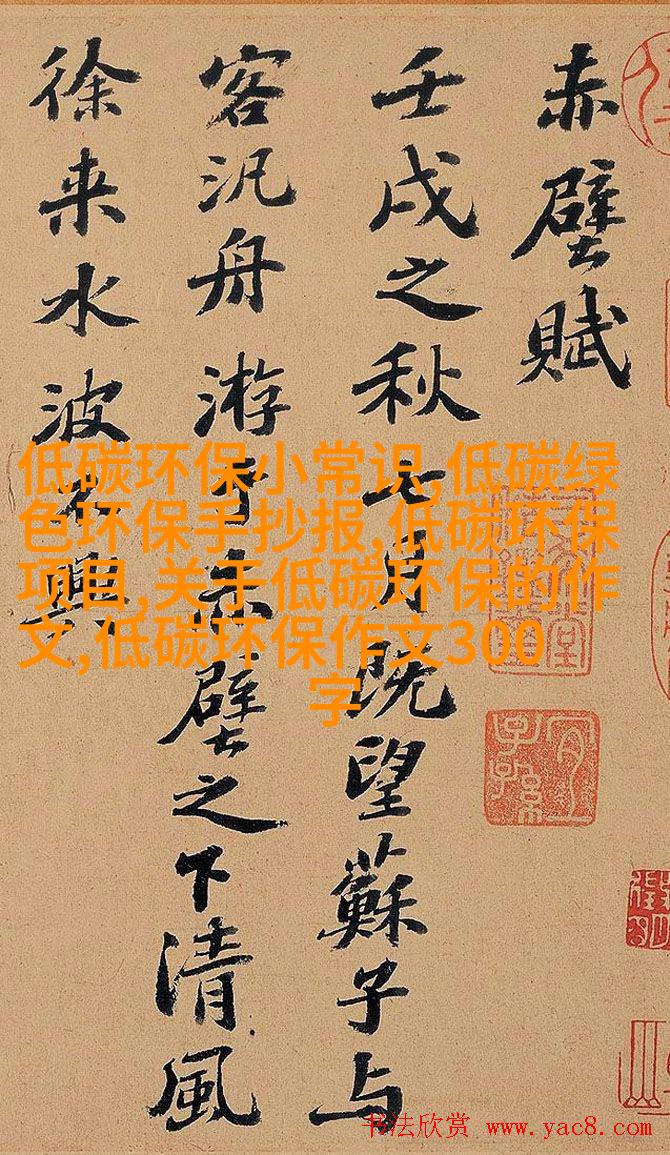 赤壁賦
壬戌之秋七月既望蘇子与
客汎舟游于赤壁之下清風
徐来水波不興
低碳环保小常识,低碳绿
色环保手抄报,低碳环保
项目,关于低碳环保的作
文,低碳环保作文300
字
书法欣赏 www.yac8.com